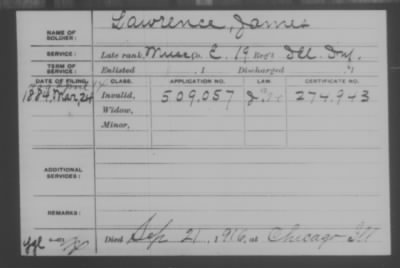 NAME OF SOLDIER: Lawrence, James
SERVICE: Late rank, Musc Co. E, 19 Reg't Ill. Inf.
TERM OF SERVICE: Enlisted , 1 Discharged , 1
DATE OF FILING. CLASS. APPLICATION NO. LAW. CERTIFICATE NO.
1884, Mar, 24 Invalid, 509.057 274.943
Widow,
Minor,
ADDITIONAL SERVICES:
REMARKS:
Died Sep 21, 1916, at Chicago Ill